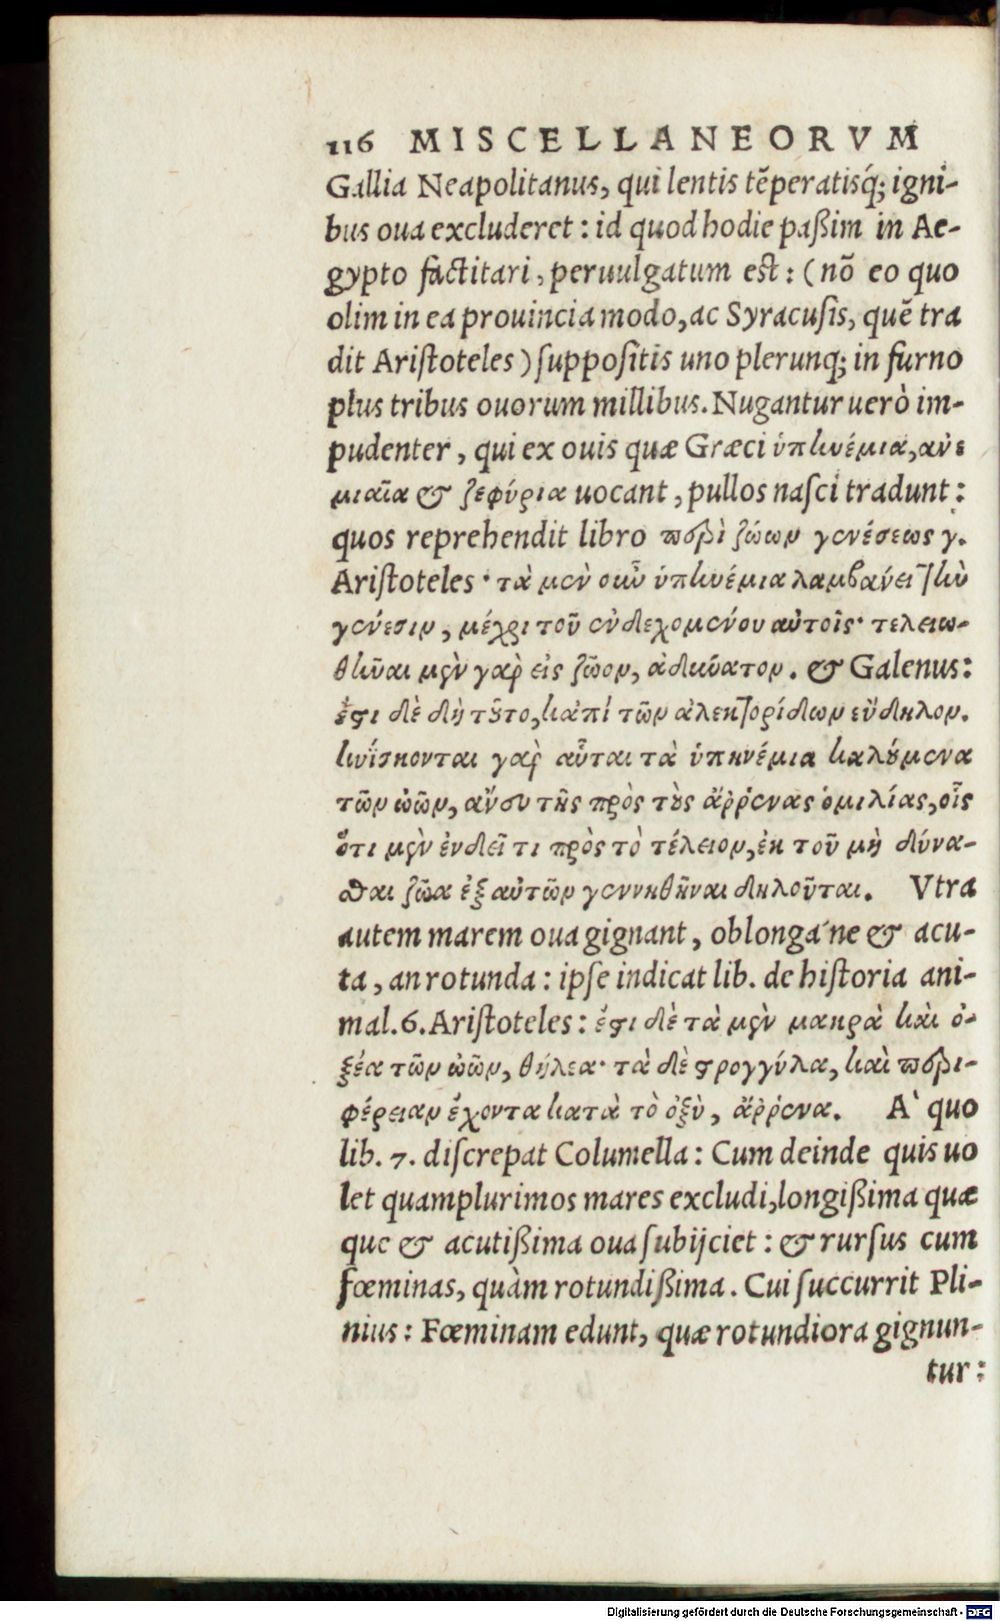 116 MISCELLANEORVM
Gallia Neapolitanus, qui lentis tẽperatisq́; igni-
bus oua excluderet: id quod hodie paßim in Ae-
gypto factitari, peruulgatum est: (nõ eo quo
olim in ea prouincia modo, ac Syracusis, quẽ tra
dit Aristoteles) suppositis uno plerunq; in furno
plus tribus ouorum millibus. Nugantur uerò im-
pudenter, qui ex ouis quæ Græci ὑπηνέμια, ἀνε
μιαῖα & ζεφύρια uocant, pullos nasci tradunt:
quos reprehendit libro περὶ ζώων γενέσεως γ.
Aristoteles· τὰ μὲν οὖν ὑπηνέμια λαμβάνει τὴν
γένεσιν, μέχρι τοῦ ἐνδεχομένου αὐτοῖς· τελειω-
θῆναι μὲν γαρ εἰς ζῶον, ἀδύνατον. & Galenus:
ἔστι δὲ δὴ τοῦτο, κἀπί τῶν ἀλεκτορίδων εὔδηλον.
κυΐσκονται γαρ αὗται τὰ ὑπηνέμια καλούμενα
τῶν ὠῶν, ἄνευ τῆς πρὸς τοὺς ἄῤῥενας ὁμιλίας, οἷς
ὅτι μὲν ἐνδεῖ τι πρὸς τὸ τέλειον, ἐκ τοῦ μὴ δύνα-
σθαι ζῶα ἐξ αὐτῶν γεννηθῆναι δηλοῦται. Vtra
autem marem oua gignant, oblonga´ne & acu-
ta, an rotunda: ipse indicat lib. de historia ani-
mal. 6. Aristoteles: ἔστι δὲ τὰ μὲν μακρὰ καὶ ὀ-
ξέα τῶν ὠῶν, θήλεα· τὰ δὲ στρογγύλα, καὶ περι-
φέρειαν ἔχοντα κατὰ τὸ ὀξὺ, ἄῤῥενα. A` quo
lib. 7. discrepat Columella: Cum deinde quis uo
let quamplurimos mares excludi, longißima quæ
que & acutißima oua subijciet: & rursus cum
fœminas, quàm rotundißima. Cui succurrit Pli-
nius: Fœminam edunt, quæ rotundiora gignun-
tur:
Digitalisierung gefördert durch die Deutsche Forschungsgemeinschaft - DFG